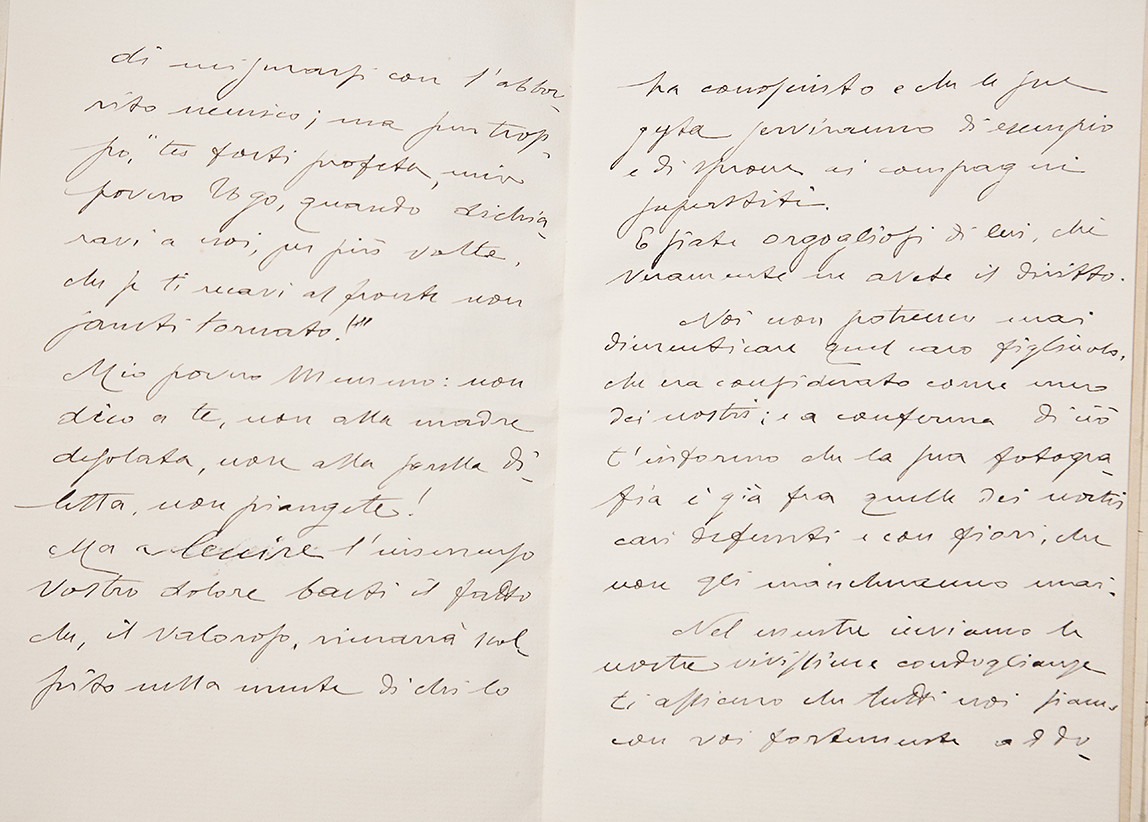 di misurarsi con l'abbor-
rito nemico; ma pur trop-
po, "tu fosti profeta, mio
povero Ugo, quando dichia-
ravi a noi, per più volte,
che se ti recavi al fronte non
saresti tornato!!"
Mio povero Memmo: non
dico a te, non alla madre
desolata, non alla sorella di-
letta, non piangete!
Ma a lenire l'immenso
vostro dolore basti il fatto
che, il valoroso, rimarrà scol
pito nella mente di chi lo
ha conosciuto e che le sue
gesta serviranno di esempio
e di sprone ai compagni
superstiti.
E siate orgogliosi di lui, chè
veramente ne avete il diritto.
Noi non potremo mai
dimenticare quel caro figliuolo,
che era considerato come uno
dei nostri; e a conferma di ciò
t'informo che la sua fotogra-
fia è già fra quelle dei nostri
cari defunti e con fiori, che
non gli mancheranno mai.
Nel mentre inviamo le
nostre vivissime condoglianze
ti assicuro che tutti noi siamo
con voi fortemente addo-